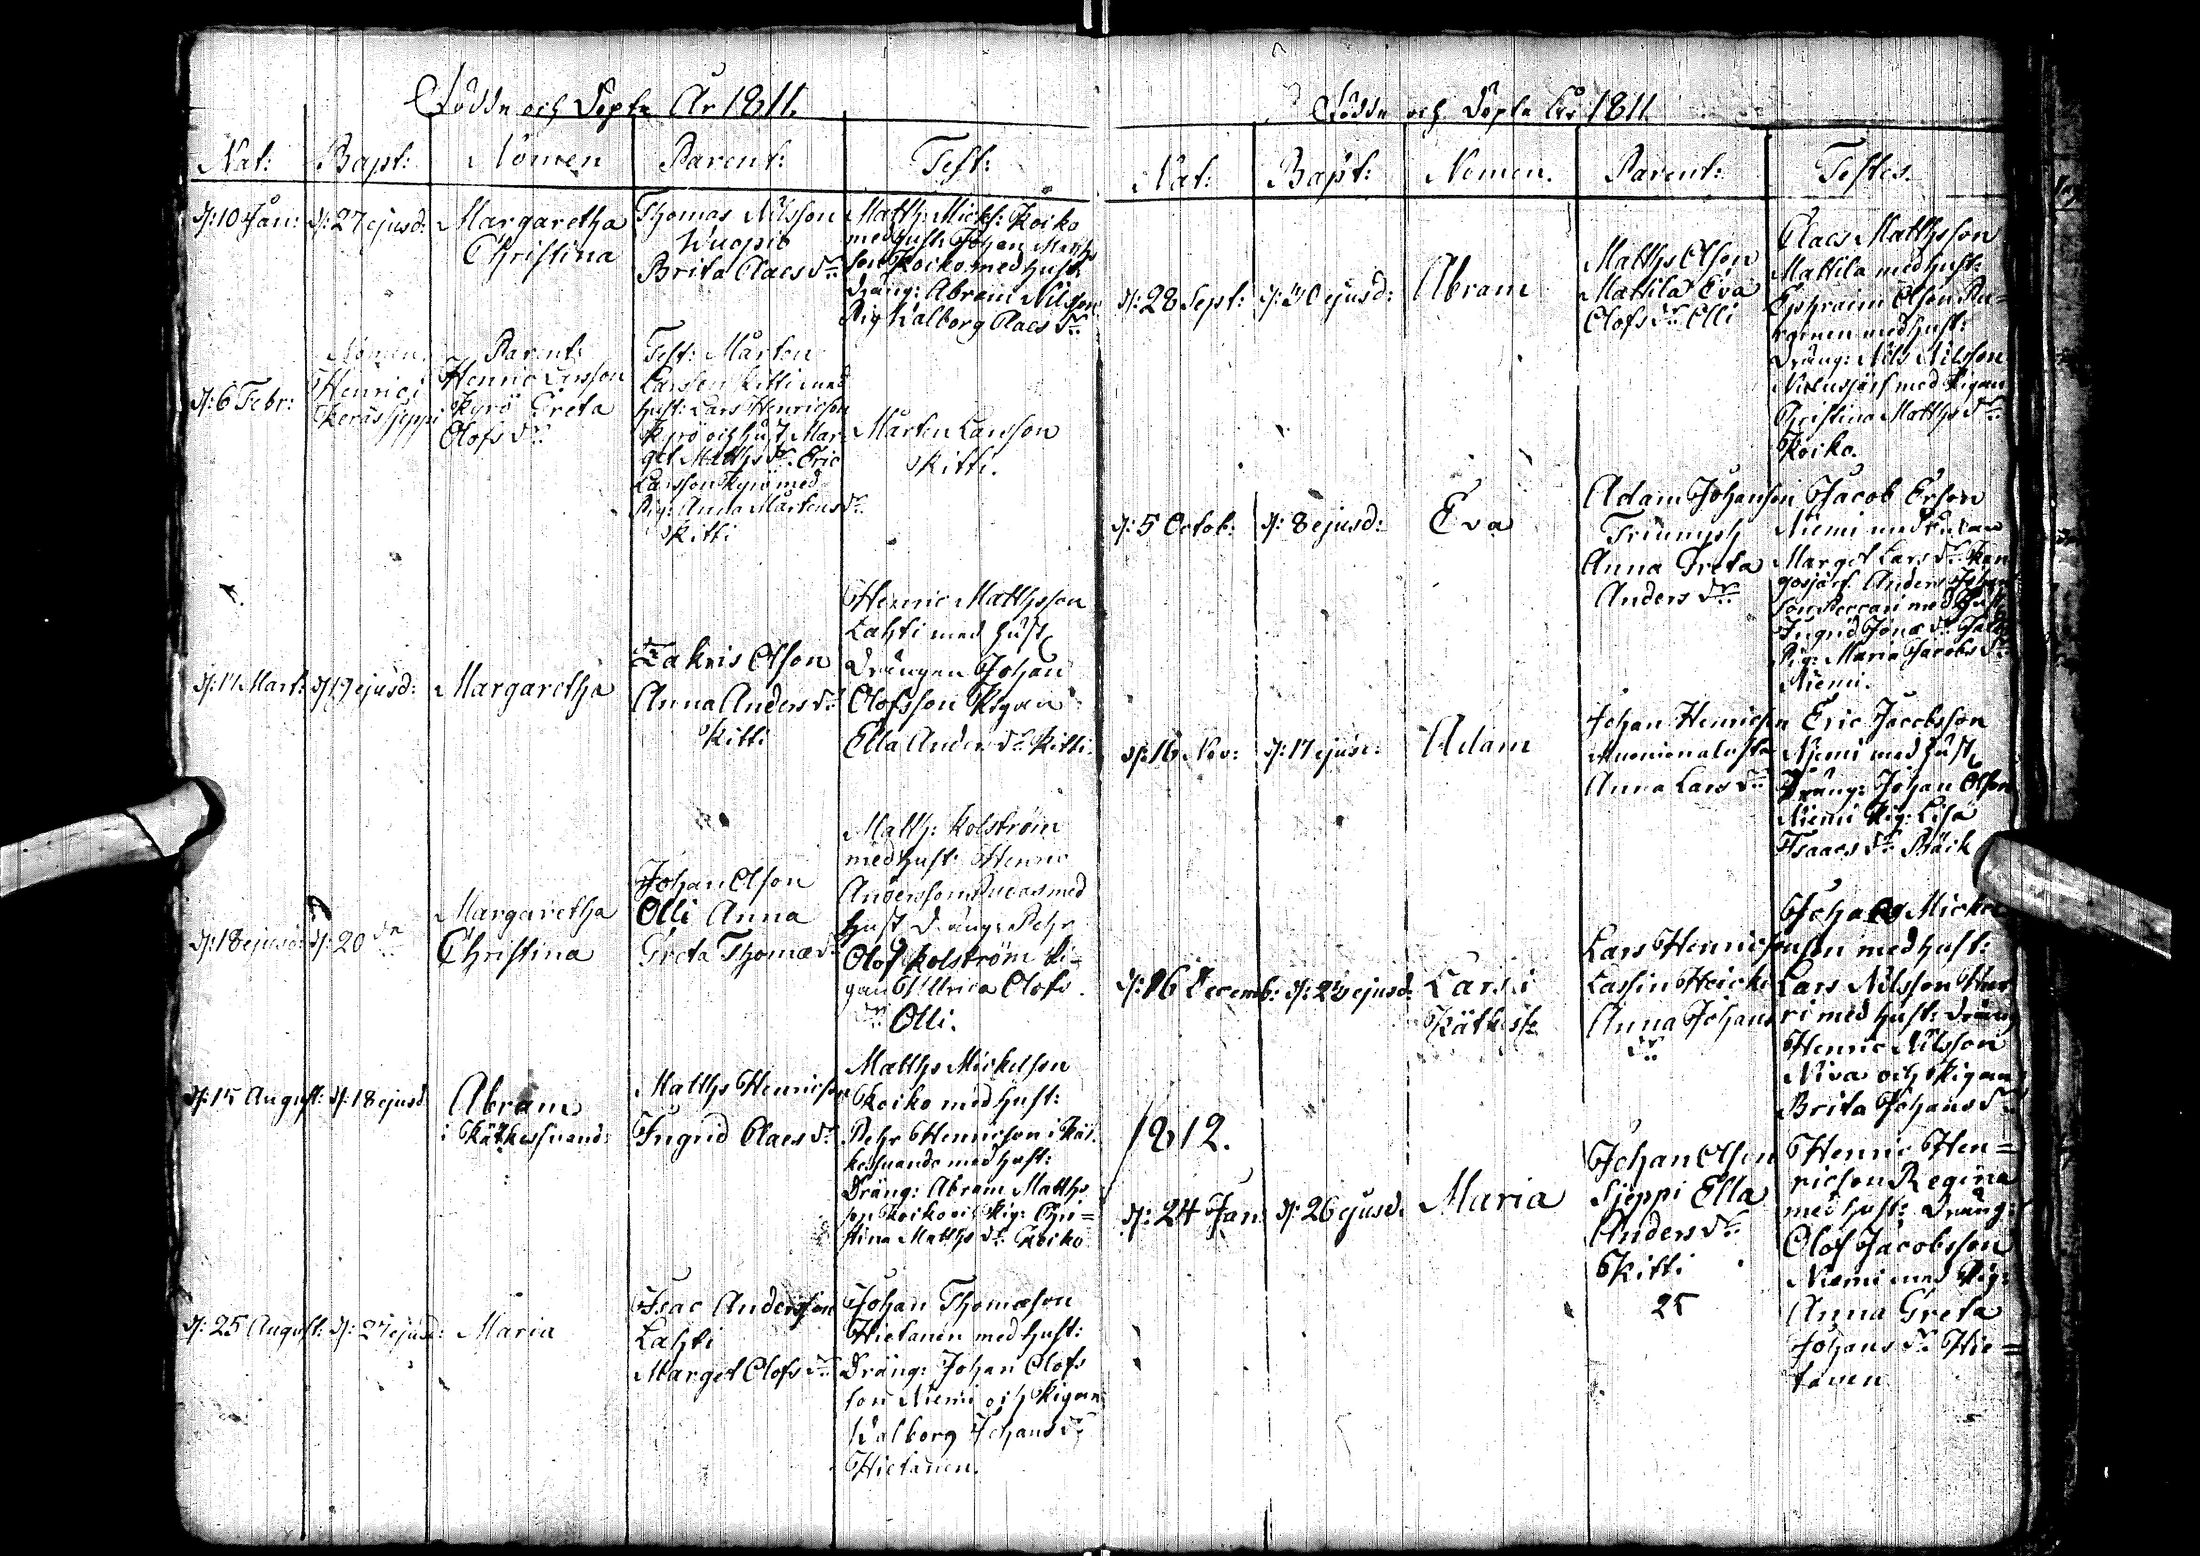 Födde och Döpte År 1811.
Nat: Bapt: Nomen Parent: Test:
d: 10 Jan: d: 27 ejusd: Margaretha Christina
Thomas Nilsson
Wuopio
Brita Claes dr.
Matth: Micks: Koiko
med hust: Johan Matths
son Koiko med hust:
dräng: Abram Nilsson
Pig Walborg Claes dr.
Nomen. Parent: Test: Mårten
d: 6 Febr:
Henric i
Keräsjeppi
Henric Larsson
Kyrö Greta
Olofs dr.
Larsson Kitti med
hust: Lars Henricson
Kyrö och hust Mar
get Matths dr. Eric
Larsson Kyrö med
Pig: Anna Mårtens dr.
Kitti
Mårten Larsson
Kitti.
d: 17 Mart: d: 19 ejusd: Margaretha
Zakris Olsson
Anna Anders dr.
Kitti
Henric Matthsson
Lahti med hust
Drängen Johan
Olofsson Pigan
Ella Anders dr. Kitti.
d: 18 ejusd: d: 20 dn
Margaretha
Christina
Johan Olsson
Olli Anna
Greta Thomæ dr.
Matth: Kolström
med hust: Henric
Andersson med
hust Dräng: Pehr
Olof Kolström Pi-
gan Ulrica Olofs
dr. Olli.
d: 15 August: d: 18 ejusd:
Abram
i Kätkesuand:
Matths Henricson
Ingrid Claes dr.
Matths Mickelson
Koiko med hust:
Pehr Henricson i Kät-
kesuando med hust:
Dräng: Abram Matths
son Koiko och Pig: Chri=
stina Matths dr. Koiko
d: 25 August: d: 27 ejusd: Maria
Isac Andersson
Lahti
Marget Olofs dr.
Johan Thomæson
Hietanen med hust:
Dräng: Johan Olofs
son Niemi och Pigan
Walborg Johans dr.
Hietanen.
Födde och Döpte År 1811
Nat: Bapt: Nomen. Parent: Testes.
d: 28 Sept: d: 30 ejusd: Abram
Matths Olsson
Mattila Eva
Olofs dr. Olli
Claes Matthsson
Mattila med hust:
Ephraim Olsson
med hust:
Dräng: Nils Nilsson
med Pigan
Christina Matths dr.
Koiko.
d: 5 Octob: d: 8 ejusd: Eva
Adam Johansson
Triumph
Anna Greta
Anders dr.
Jacob Erson
Niemi med
Marget Lars dr. Ken
gosjärf. Anders Johan
son med hust:
Ingrid Jonæ dr.
Pig: Maria Jacobs dr.
Niemi.
d: 16 Nov: d: 17 ejusd: Adam
Johan Henricson
Muonionalusta
Anna Lars dr.
Eric Jacobsson
Niemi med hust
Dräng: Johan Olsson
Niemi Pig: Lisa
Isaacs dr. Bäck
d: 16 Decemb: d: 25 ejusd:
Lars i
Kätkes:
Lars Henricson
Lassin Heicki
Anna Johans
dr.
Johan Mickel
son med hust:
Lars Nilsson
med hust: Dräng
Henric Nilsson
Niva och Pigan
Brita Johans dr.
1812.
d: 24 Jan: d: 26 ejusd: Maria
Johan Olsson
Sjeppi Ella
Anders dr.
Kitti
25
Henric Hen=
ricson Regina
med hust: Dräng:
Olof Jacobsson
Niemi med Pig:
Anna Greta
Johans dr. Hie=
tanen